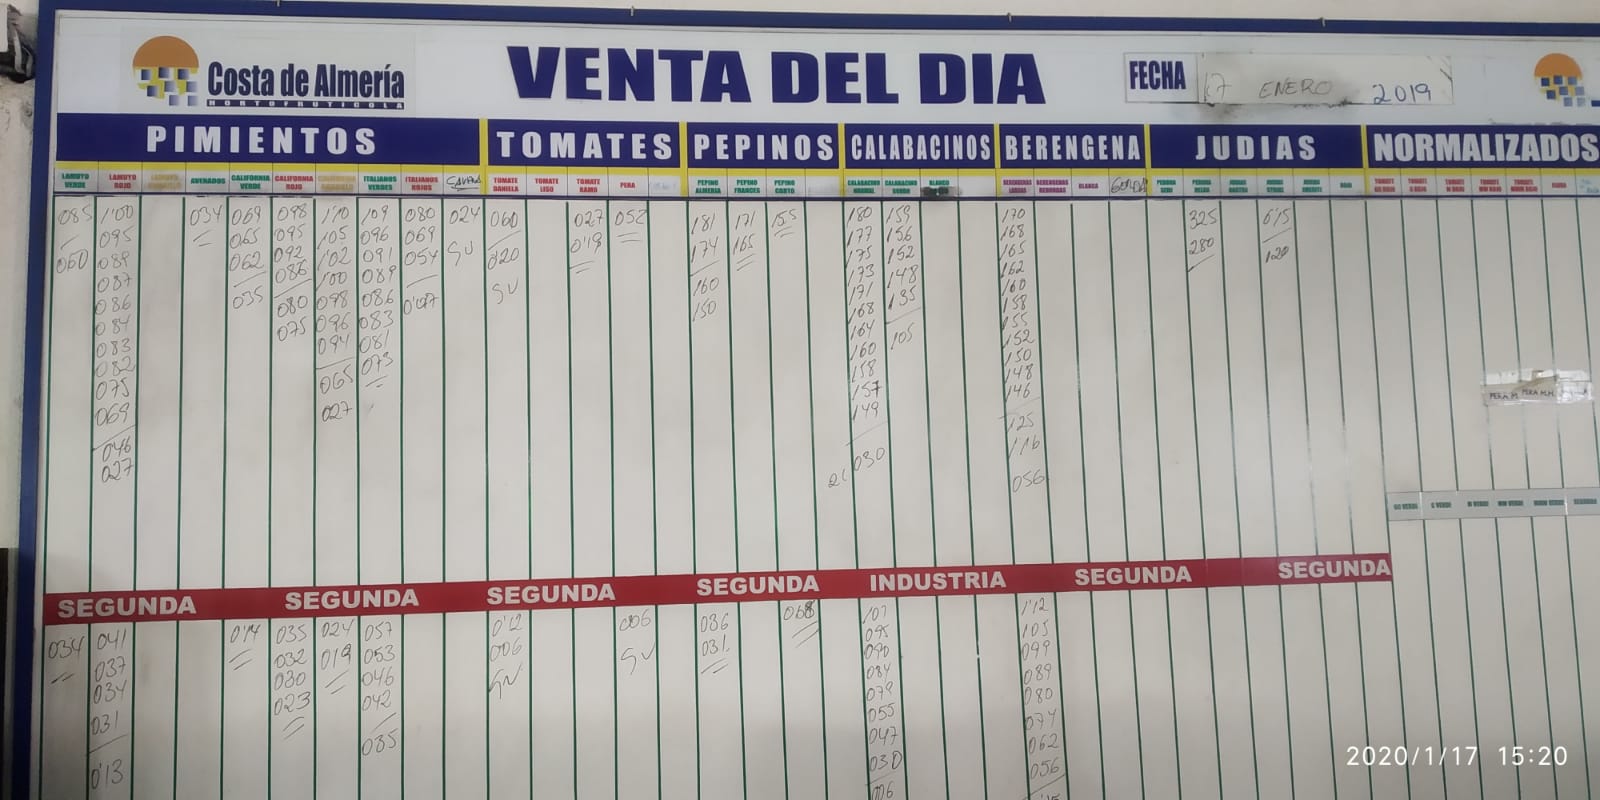 Costa de Almería
HORTOFRUTICOLA
VENTA DEL DIA
FECHA 17 ENERO 2019
PIMIENTOS TOMATES PEPINOS CALABACINOS BERENGENA JUDIAS NORMALIZADOS
LAMUYO VERDE
LAMUYO ROJO
LAMUYO AMARILLO
AVENADOS
CALIFORNIA VERDE
CALIFORNIA ROJO
CALIFORNIA AMARILLO
ITALIANOS VERDES
ITALIANOS ROJOS
TOMATE DANIELA
TOMATE LISO
TOMATE RAMO
PERA
PEPINO ALMERIA
PEPINO FRANCES
PEPINO CORTO
CALABACINO
CALABACINO GORDO
BLANCO
BLANCA
GORDA
085
060
1'00
095
089
087
086
084
083
082
075
069
046
027
034
069
065
062
035
098
095
092
086
080
075
1'10
105
102
100
098
096
094
065
027
109
096
091
089
086
083
081
073
080
069
054
0'07
024
SV
060
020
SV
027
0'19
052
181
174
160
150
171
165
155
180
177
175
173
171
168
164
160
158
157
149
030
159
156
152
148
135
105
170
168
165
162
160
158
155
152
150
148
146
125
116
056
325
280
120
PERA M
PERA M.H.
SEGUNDA SEGUNDA SEGUNDA SEGUNDA INDUSTRIA SEGUNDA SEGUNDA
034
041
037
034
031
0'13
0'14
035
032
030
023
024
019
057
053
046
042
035
0'12
006
SV
006
SV
036
031
068
107
095
090
084
079
055
047
030
006
1'12
105
099
089
080
074
062
056
2020/1/17 15:20